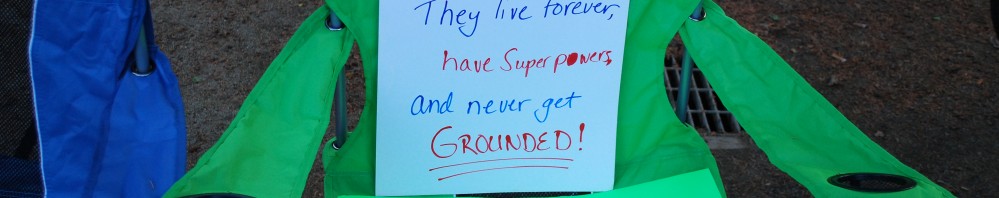 They live forever,
have Superpowers,
and never get
GROUNDED!